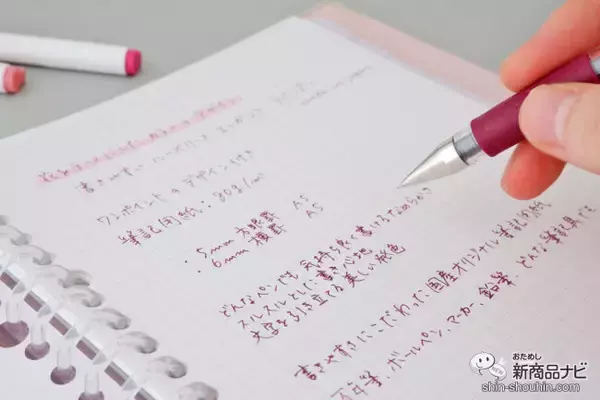 書きやすい ルーズリーフ
ワンポイントのデザイン付き
筆記用紙: 80g/m²
: 5mm 方眼罫 A5
: 6mm 横罫 A5
どんなペンでも気持ち良く書けるなめらかさ
スルスルとした書き心地
文字を引き立てる美しい紙色
書きやすさにこだわった国産オリジナル筆記用紙
万年筆、ボールペン、マーカー、鉛筆、どんな筆記具で
おためし
新商品ナビ
shin-shouhin.com